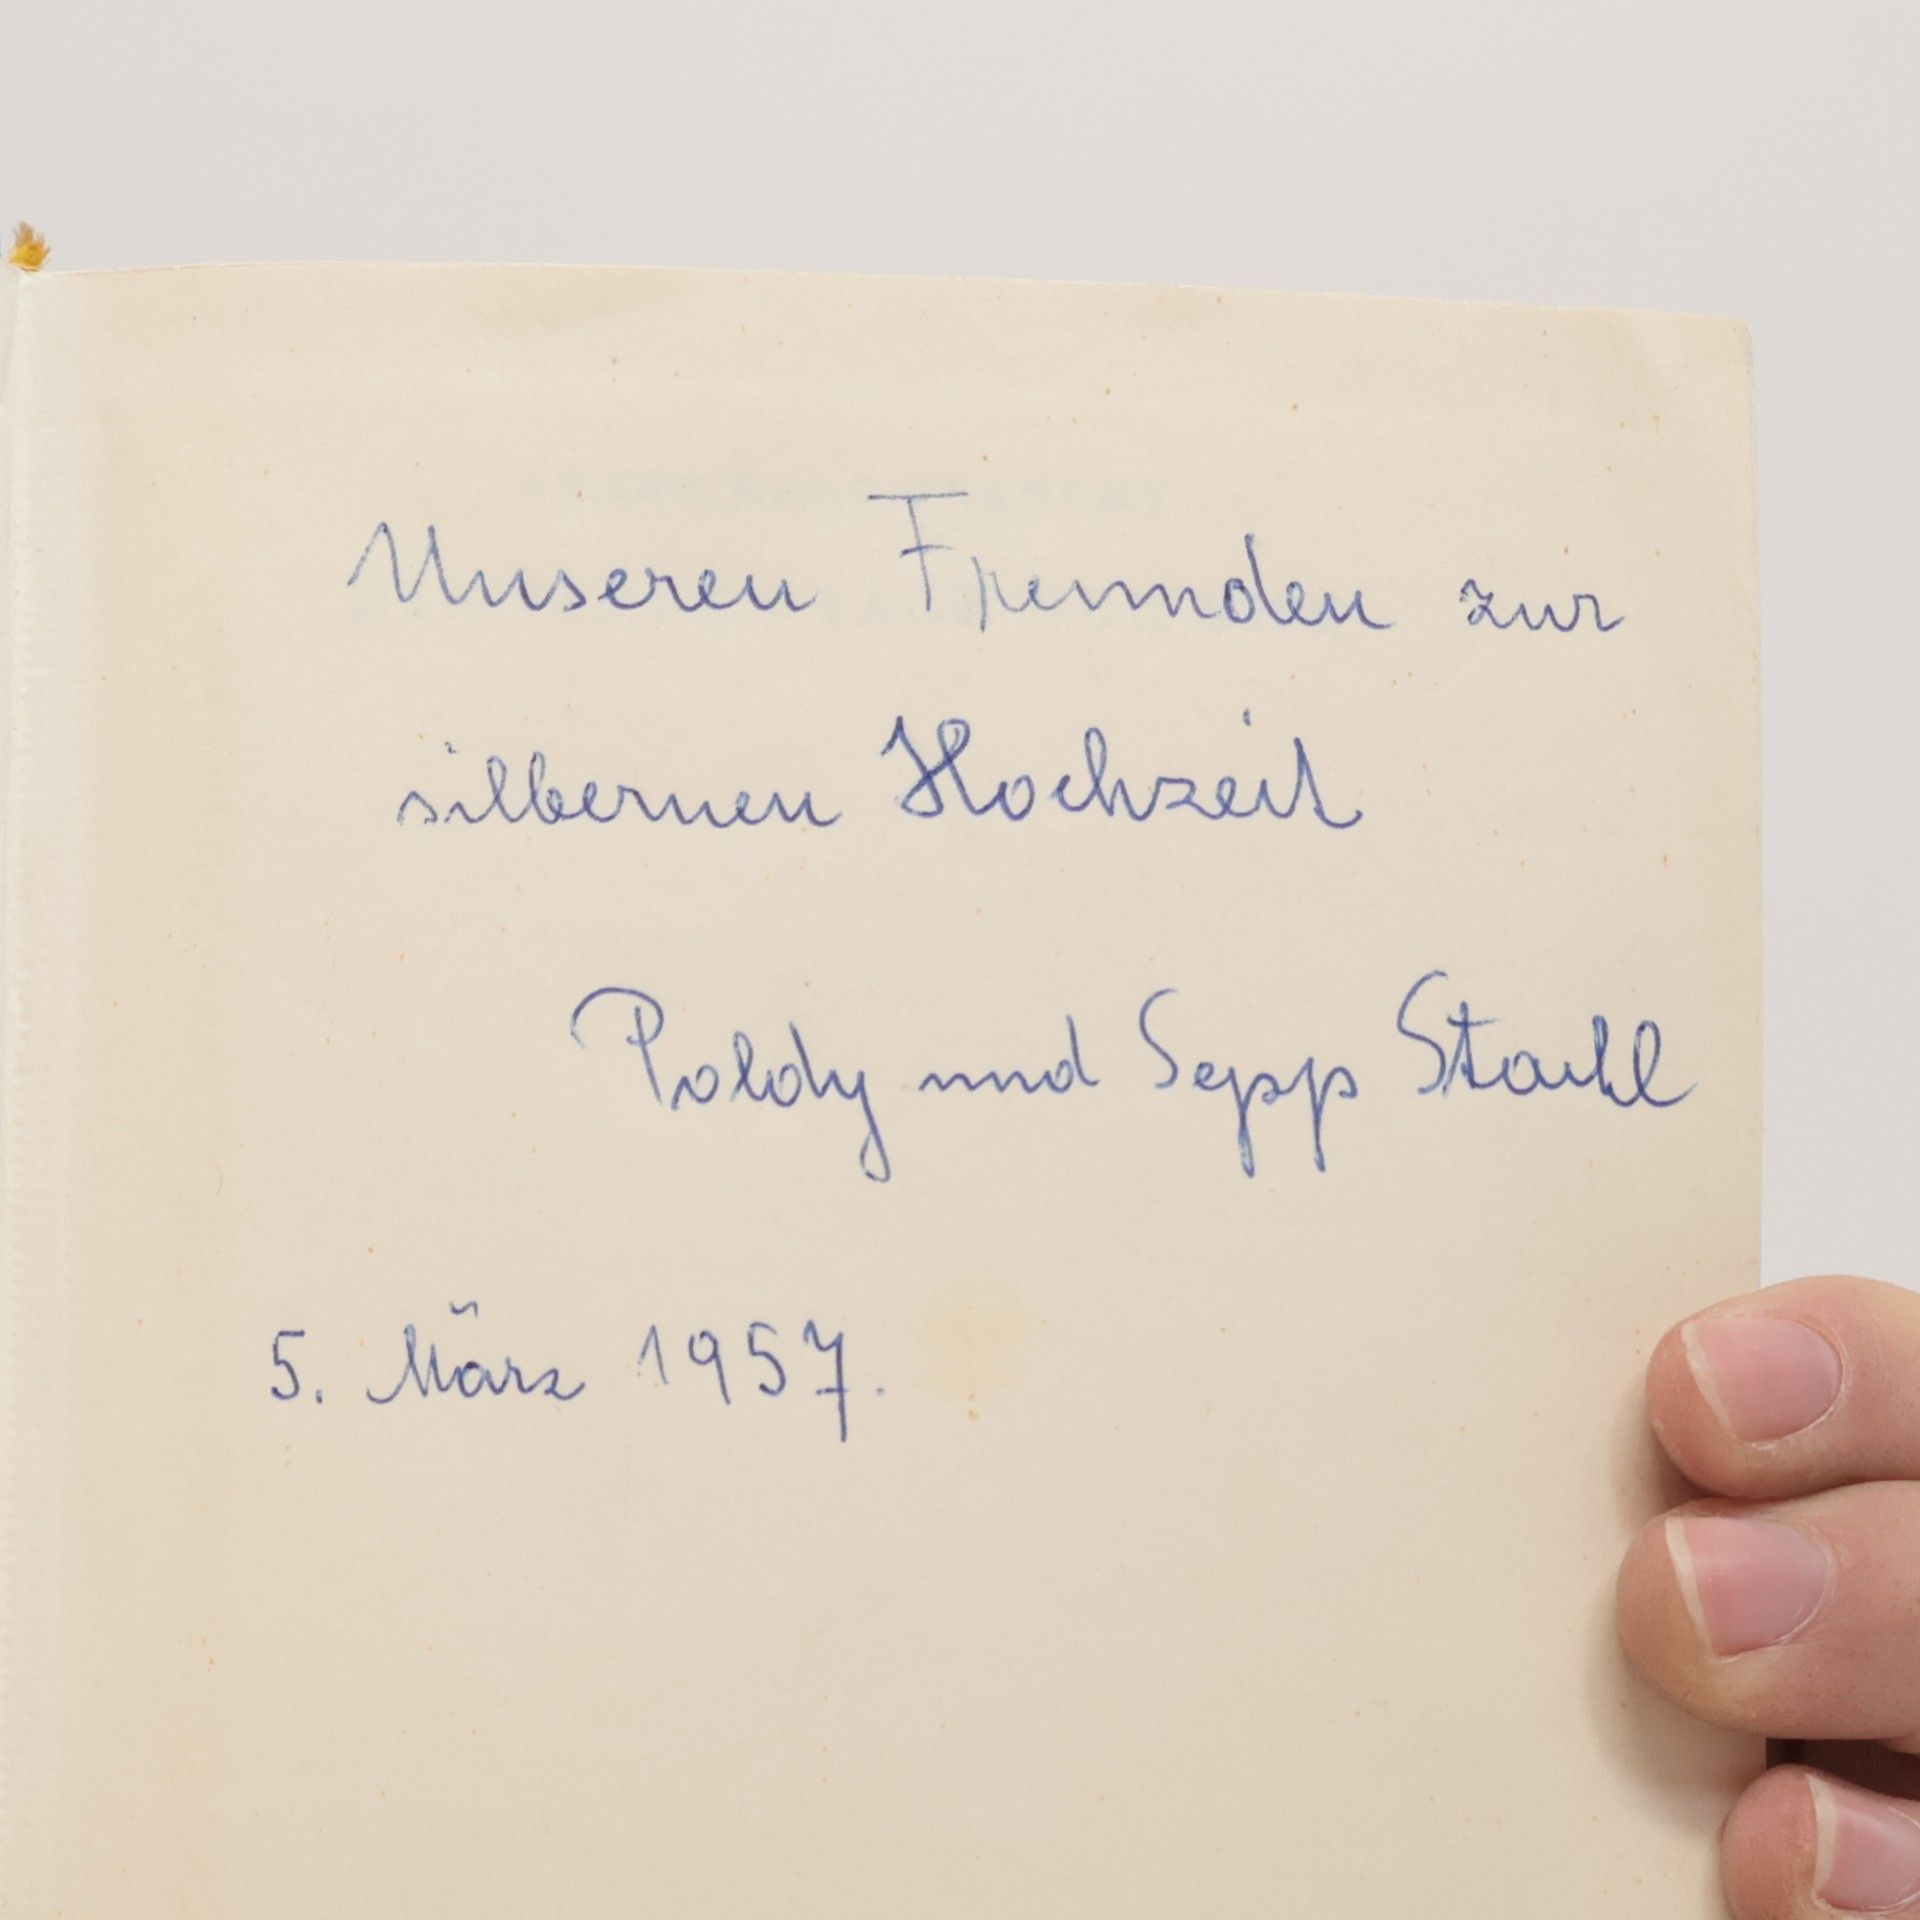 Unseren Freunden zur
silbernen Hochzeit
Poldy und Sepp Stahl
5. März 1957.